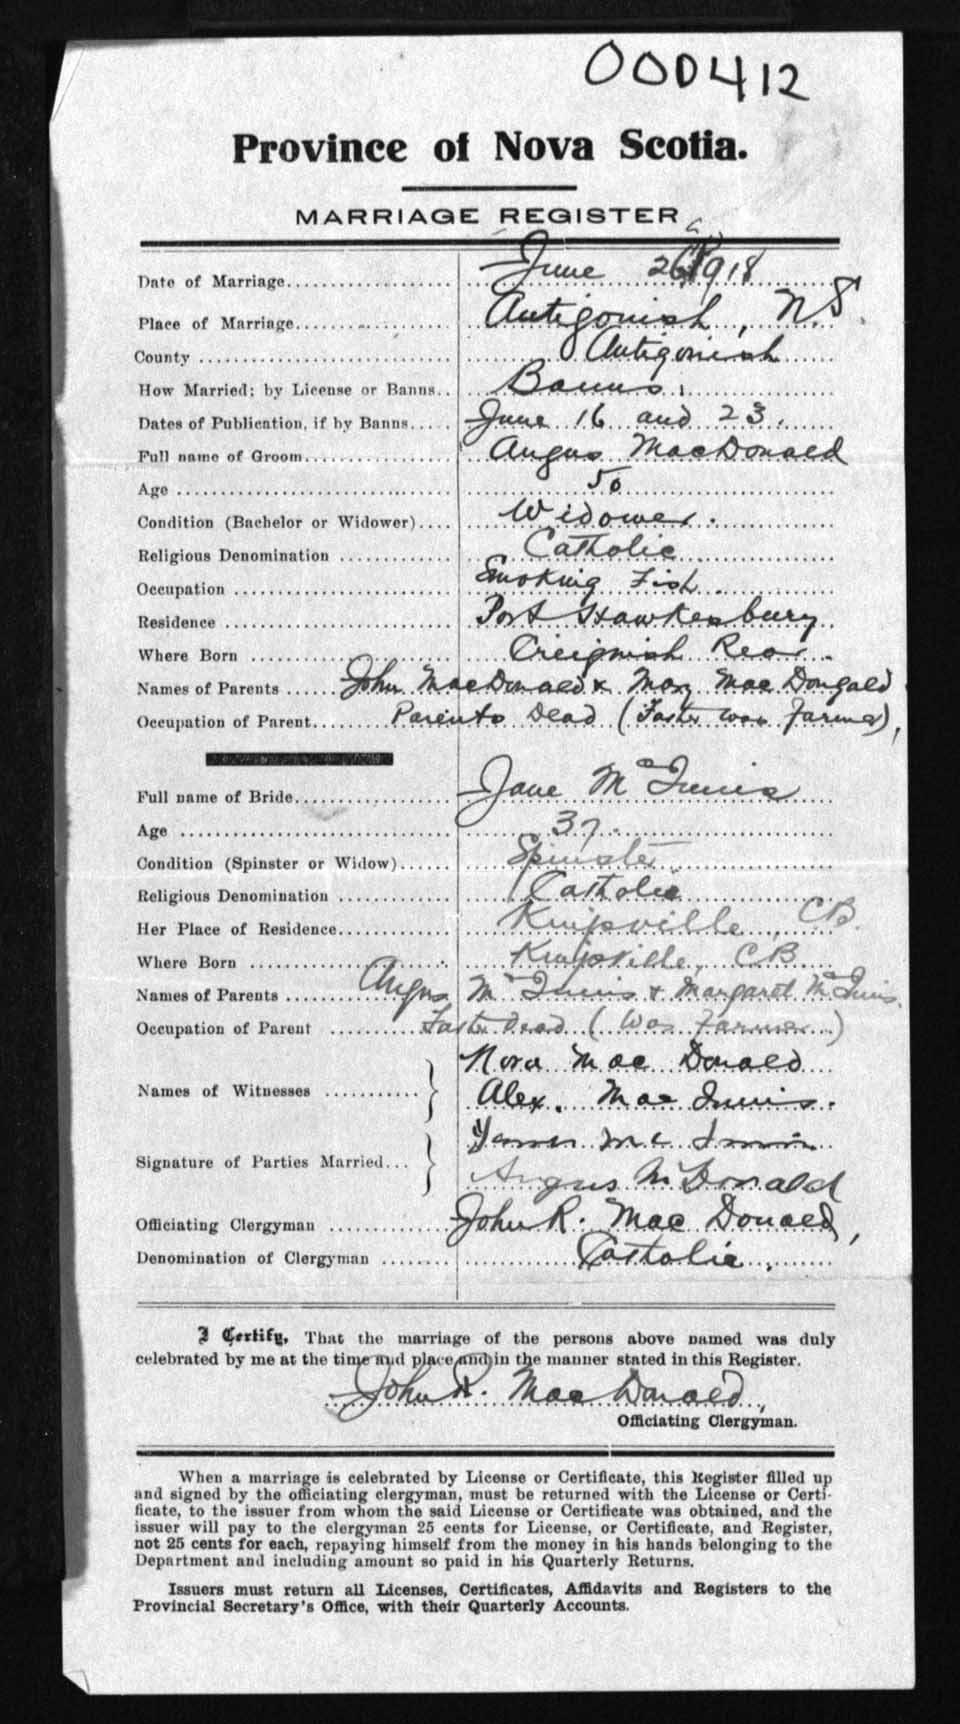 000412
Province of Nova Scotia.
MARRIAGE REGISTER
Date of Marriage June 26 1918
Place of Marriage Antigonish, N.S.
County Antigonish
How Married; by License or Banns Banns.
Dates of Publication, if by Banns June 16 and 23.
Full name of Groom Angus MacDonald
Age 50
Condition (Bachelor or Widower) Widower.
Religious Denomination Catholic
Occupation Smoking Fish.
Residence Port Hawkesbury
Where Born Creignish Rear.
Names of Parents John MacDonald & Mary MacDougald
Occupation of Parent Parents Dead (Father was Farmer),
Full name of Bride Jane McInnis
Age 37.
Condition (Spinster or Widow) Spinster
Religious Denomination Catholic
Her Place of Residence Kingsville, CB.
Where Born Kingsville, CB
Names of Parents Angus McInnis & Margaret McInnis.
Occupation of Parent Father Dead (Was Farmer)
Names of Witnesses Nora MacDonald
Alex. MacInnis.
Signature of Parties Married Mc Innis
Angus McDonald
Officiating Clergyman John R. MacDonald,
Denomination of Clergyman Catholic.
I Certify, That the marriage of the persons above named was duly
celebrated by me at the time and place and in the manner stated in this Register.
John R. MacDonald,
Officiating Clergyman.
When a marriage is celebrated by License or Certificate, this Register filled up
and signed by the officiating clergyman, must be returned with the License or Certi-
ficate, to the issuer from whom the said License or Certificate was obtained, and the
issuer will pay to the clergyman 25 cents for License, or Certificate, and Register,
not 25 cents for each, repaying himself from the money in his hands belonging to the
Department and including amount so paid in his Quarterly Returns.
Issuers must return all Licenses, Certificates, Affidavits and Registers to the
Provincial Secretary's Office, with their Quarterly Accounts.